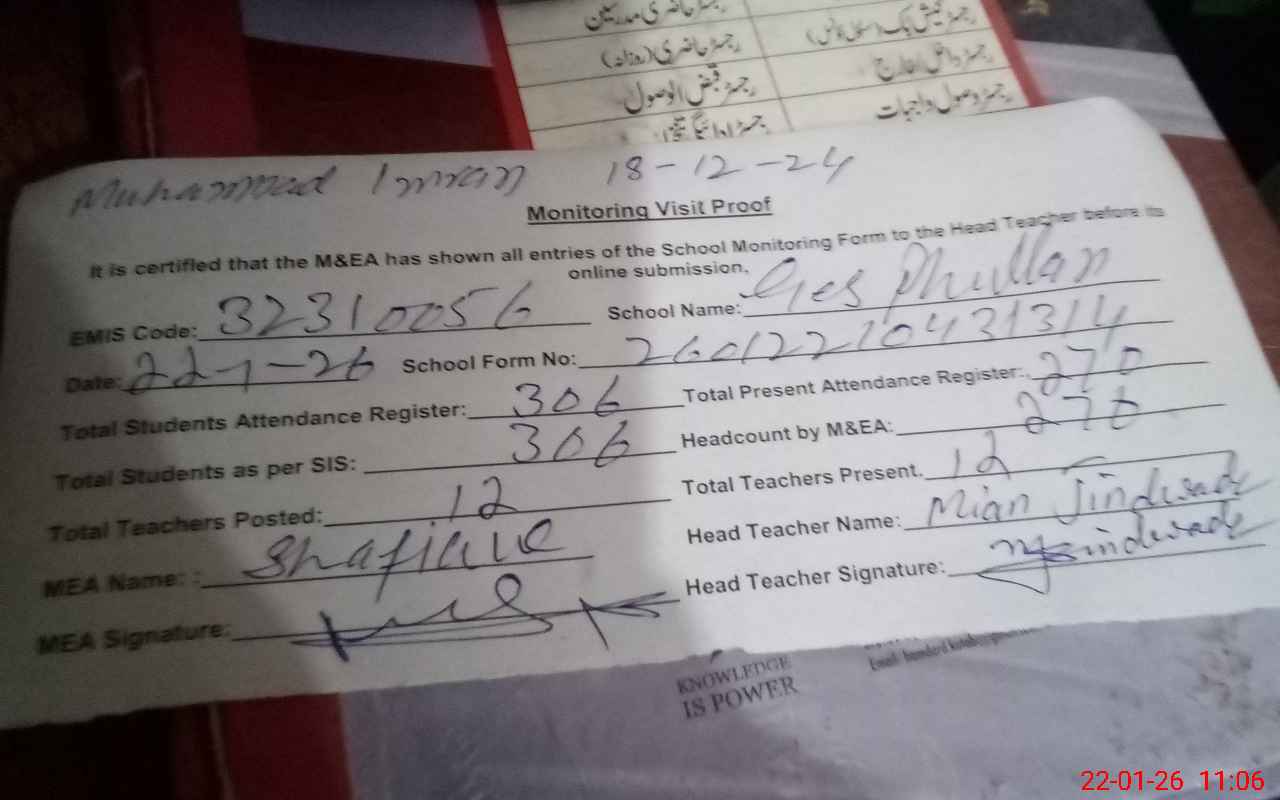 رجسٹر حاضری مدرسین
رجسٹر کیش بک (سکول کونسل)
رجسٹر حاضری (روزانہ)
رجسٹر داخل خارج
رجسٹر قبض الوصول
رجسٹر وصولی واجبات
Muhammad Imran 18-12-24
Monitoring Visit Proof
It is certified that the M&EA has shown all entries of the School Monitoring Form to the Head Teacher before its
online submission.
EMIS Code: 32310056 School Name: Ges Phullan
Date: 22-1-26 School Form No: 2601221043 1314
Total Students Attendance Register: 306 Total Present Attendance Register: 270
Total Students as per SIS: 306 Headcount by M&EA: 270
Total Teachers Posted: 12 Total Teachers Present. 12
MEA Name: : Shafique Head Teacher Name: Mian Jindwade
MEA Signature: Head Teacher Signature: Jindwade
KNOWLEDGE
IS POWER
22-01-26 11:06